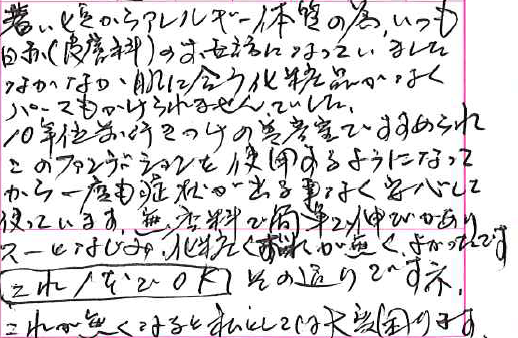 若い頃からアレルギー体質の為、いつも
日赤(皮膚科)のお世話になっていました
なかなか、肌に合う化粧品がなく
パーマもかけられませんでした。
10年位前行きつけの美容室ですすめられ
このファンデーションを使用するようになって
から一度も症状が出る事なく安心して
使っています。無香料で簡単で伸びがあり
スーとなじみ、化粧くずれが無く、よかったです
これ1本でOK その通りですネ。
これが無くなると私としては大変困ります。